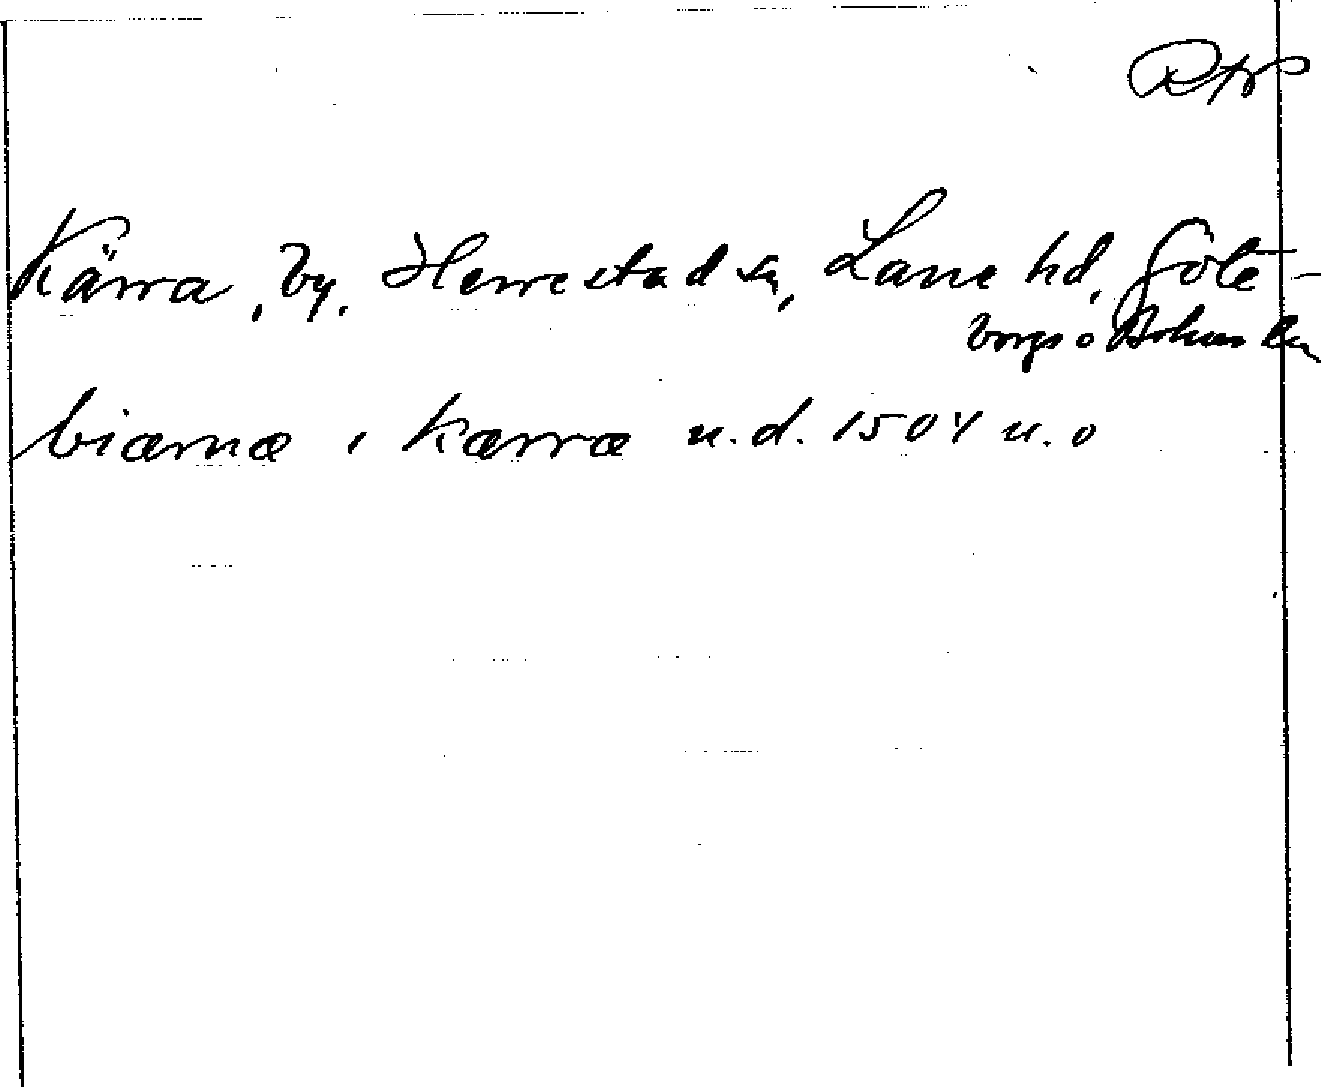 Kärra, by, Herrestad sn, Lane hd, Göte-
borgs o Bohus län
biærnæ i kærræ u.d. 1504 u. o